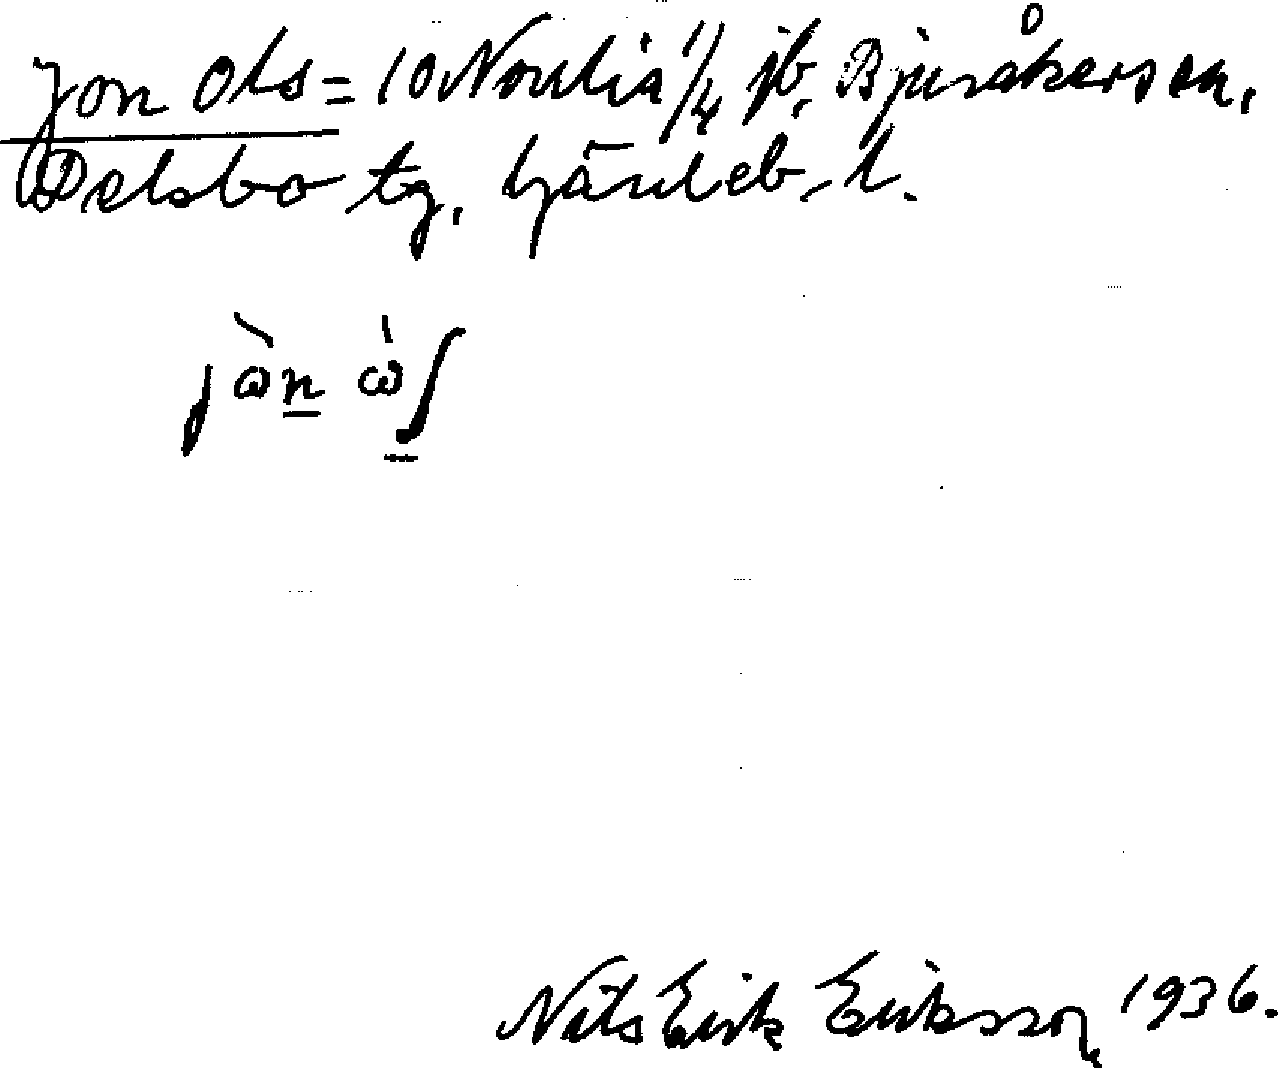 Jon Ols = 10 Norrlia 1/4 jb, Bjuråkers sn,
Delsbo tg, Gävleb. l.
jòn òʃ
Nils Erik Eriksson, 1936.